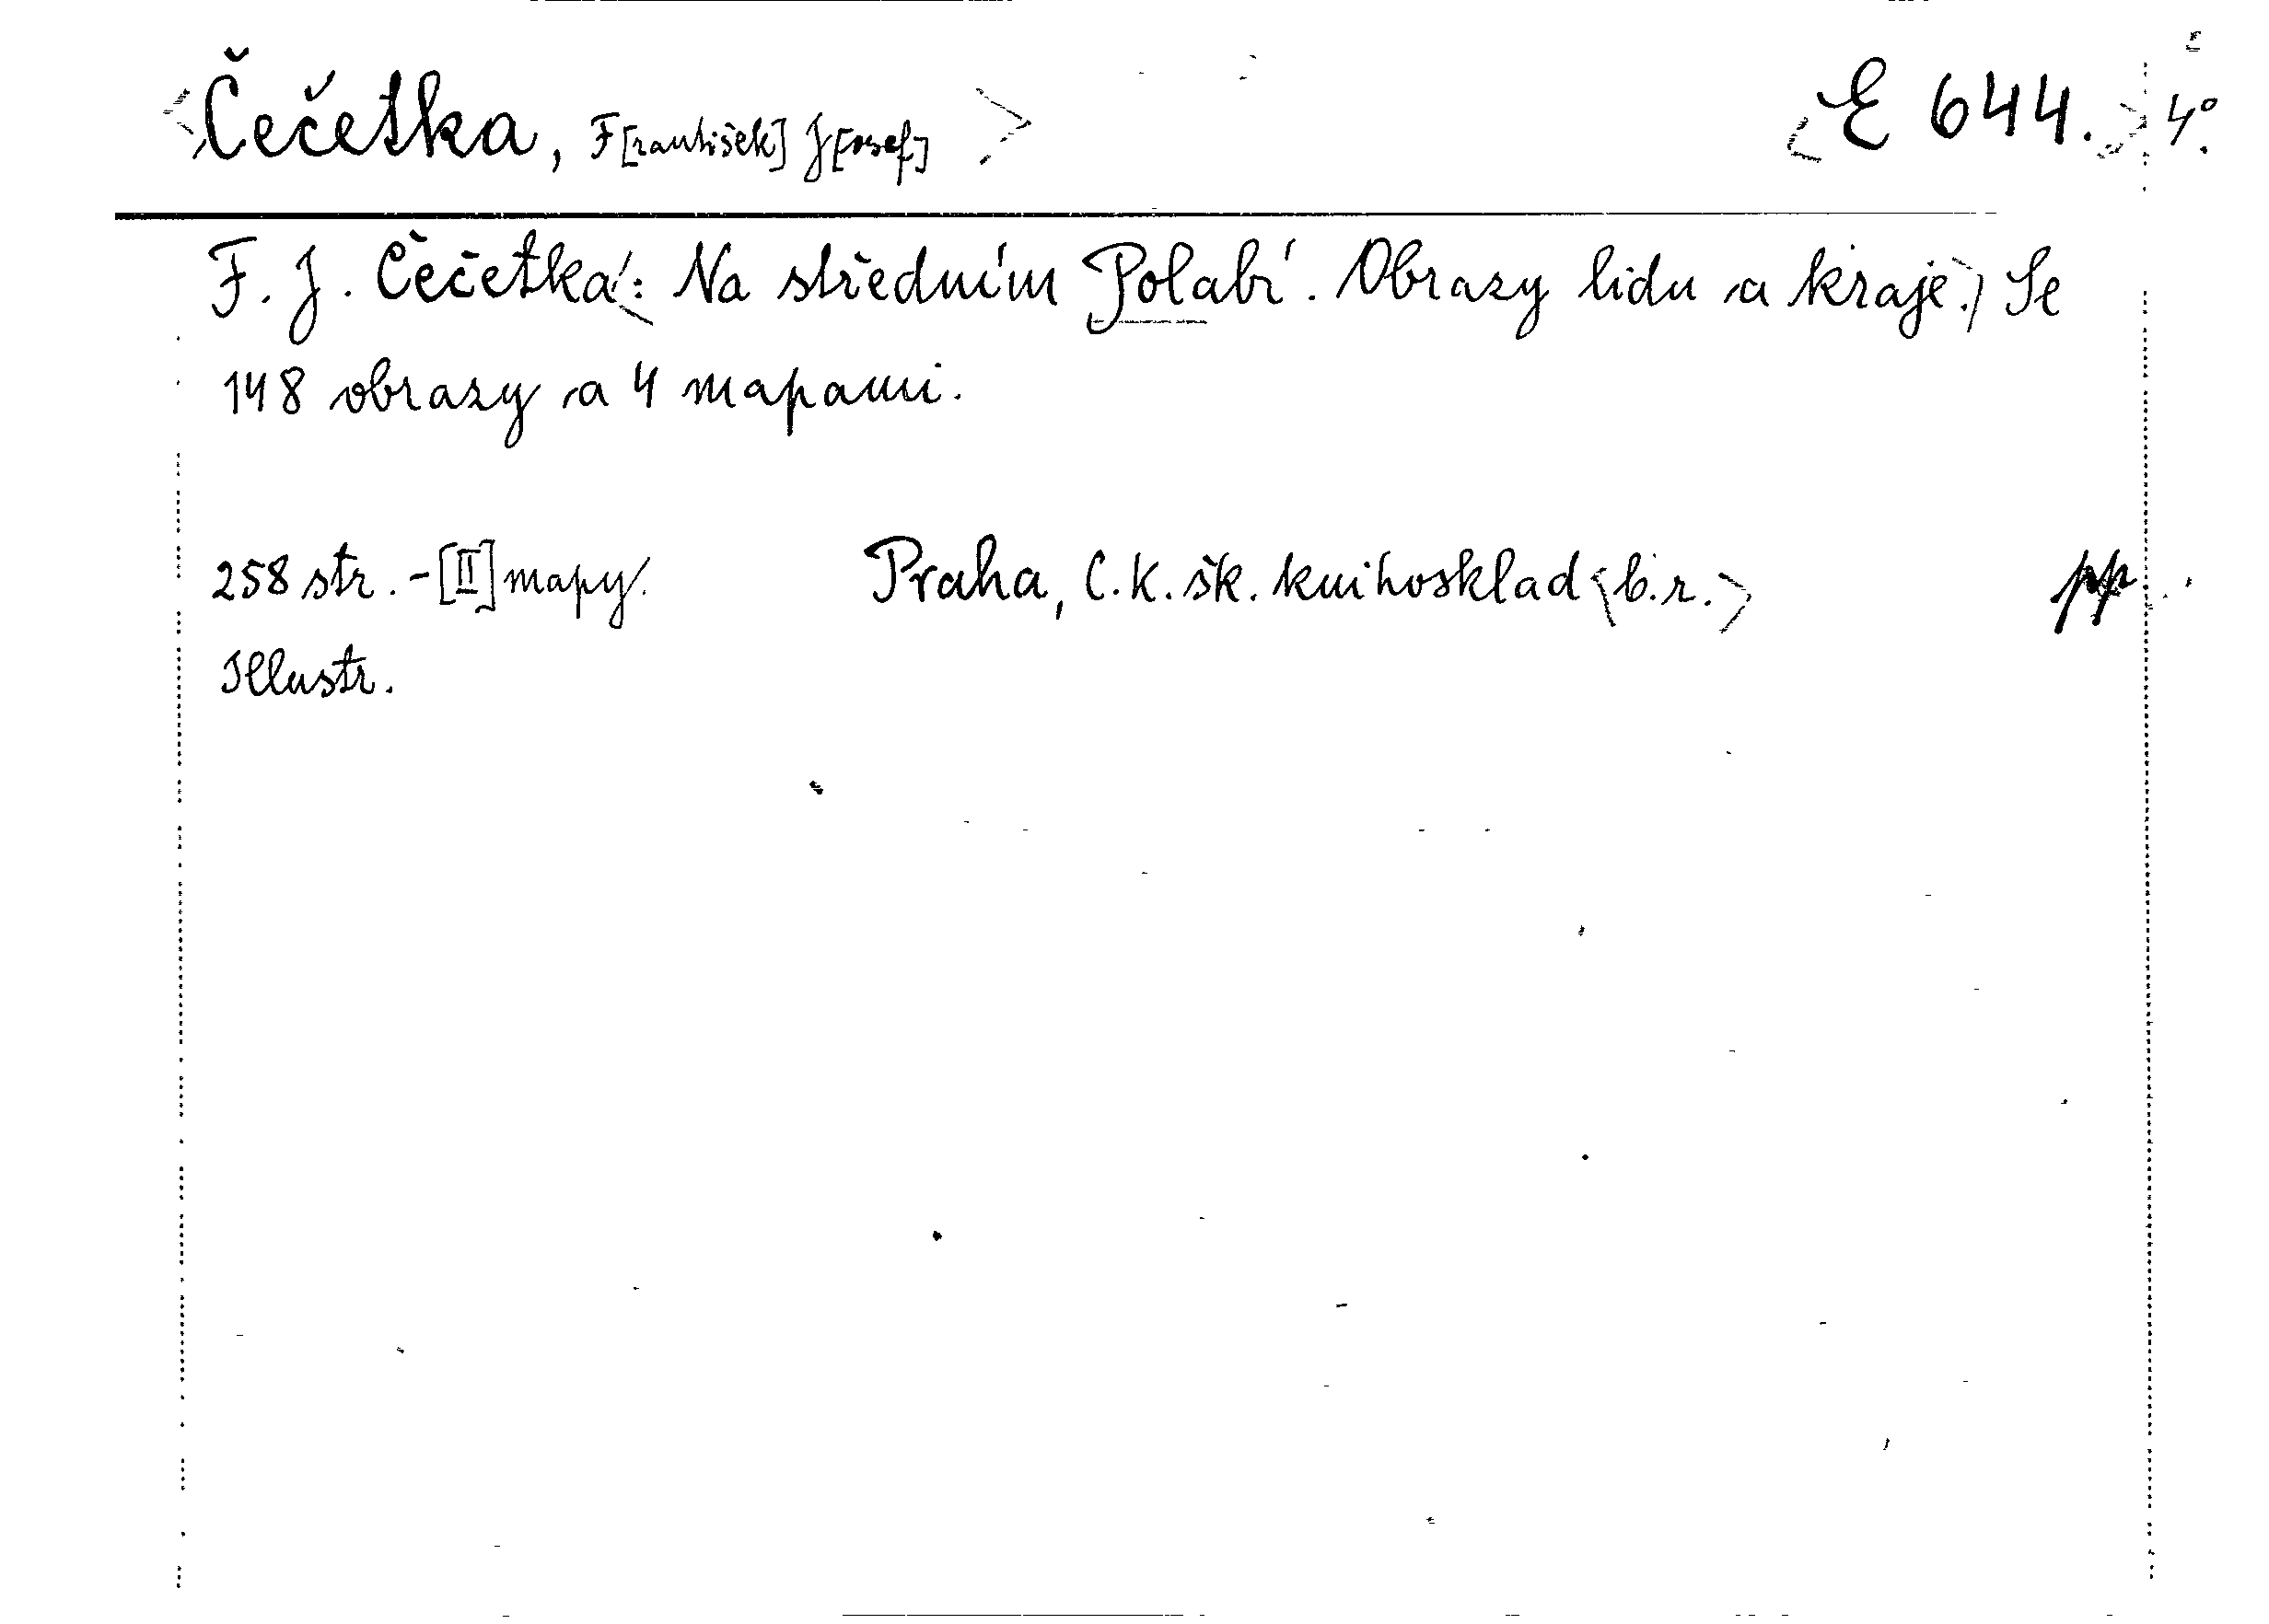 <Čečetka, F[rantišek] J[osef]> <E 644.> 4°.
F. J. Čečetka<: Na středním Polabí. Obrazy lidu a kraje.> Se
148 obrazy a 4 mapami.
258 str. - [II] mapy. Praha, C. K. šk. knihosklad <b. r.> pp
Illustr.